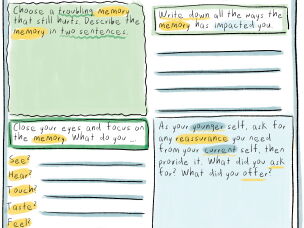 Choose a troubling memory
that still hurts. Describe the
memory in two sentences.
Write down all the ways the
memory has impacted you.
Close your eyes and focus on
the memory. What do you ...
See?
Hear?
Touch?
Taste?
Feel?
As your younger self, ask for
any reassurance you need
from your current self, then
provide it. What did you ask
for? What did you offer?